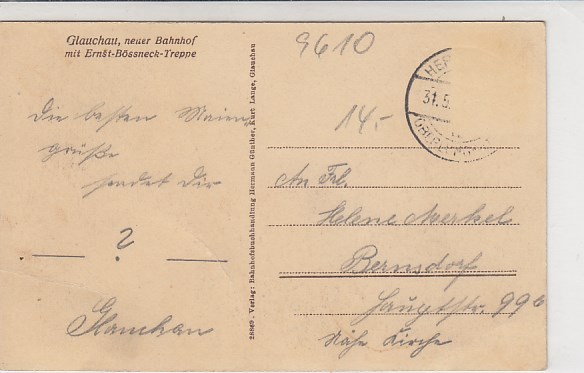 Glauchau, neuer Bahnhof
mit Ernst-Bössneck-Treppe
9610
HER
31.5.
14.-
Die besten Maien
grüße
sendet Dir
?
Glauchau
28869. Verlag: Bahnhofsbuchhandlung Hermann Günther, Kurt Lange, Glauchau
An Frl.
Helene Merkel
Bernsdorf
Hauptstr. 99b
Nähe Kirche